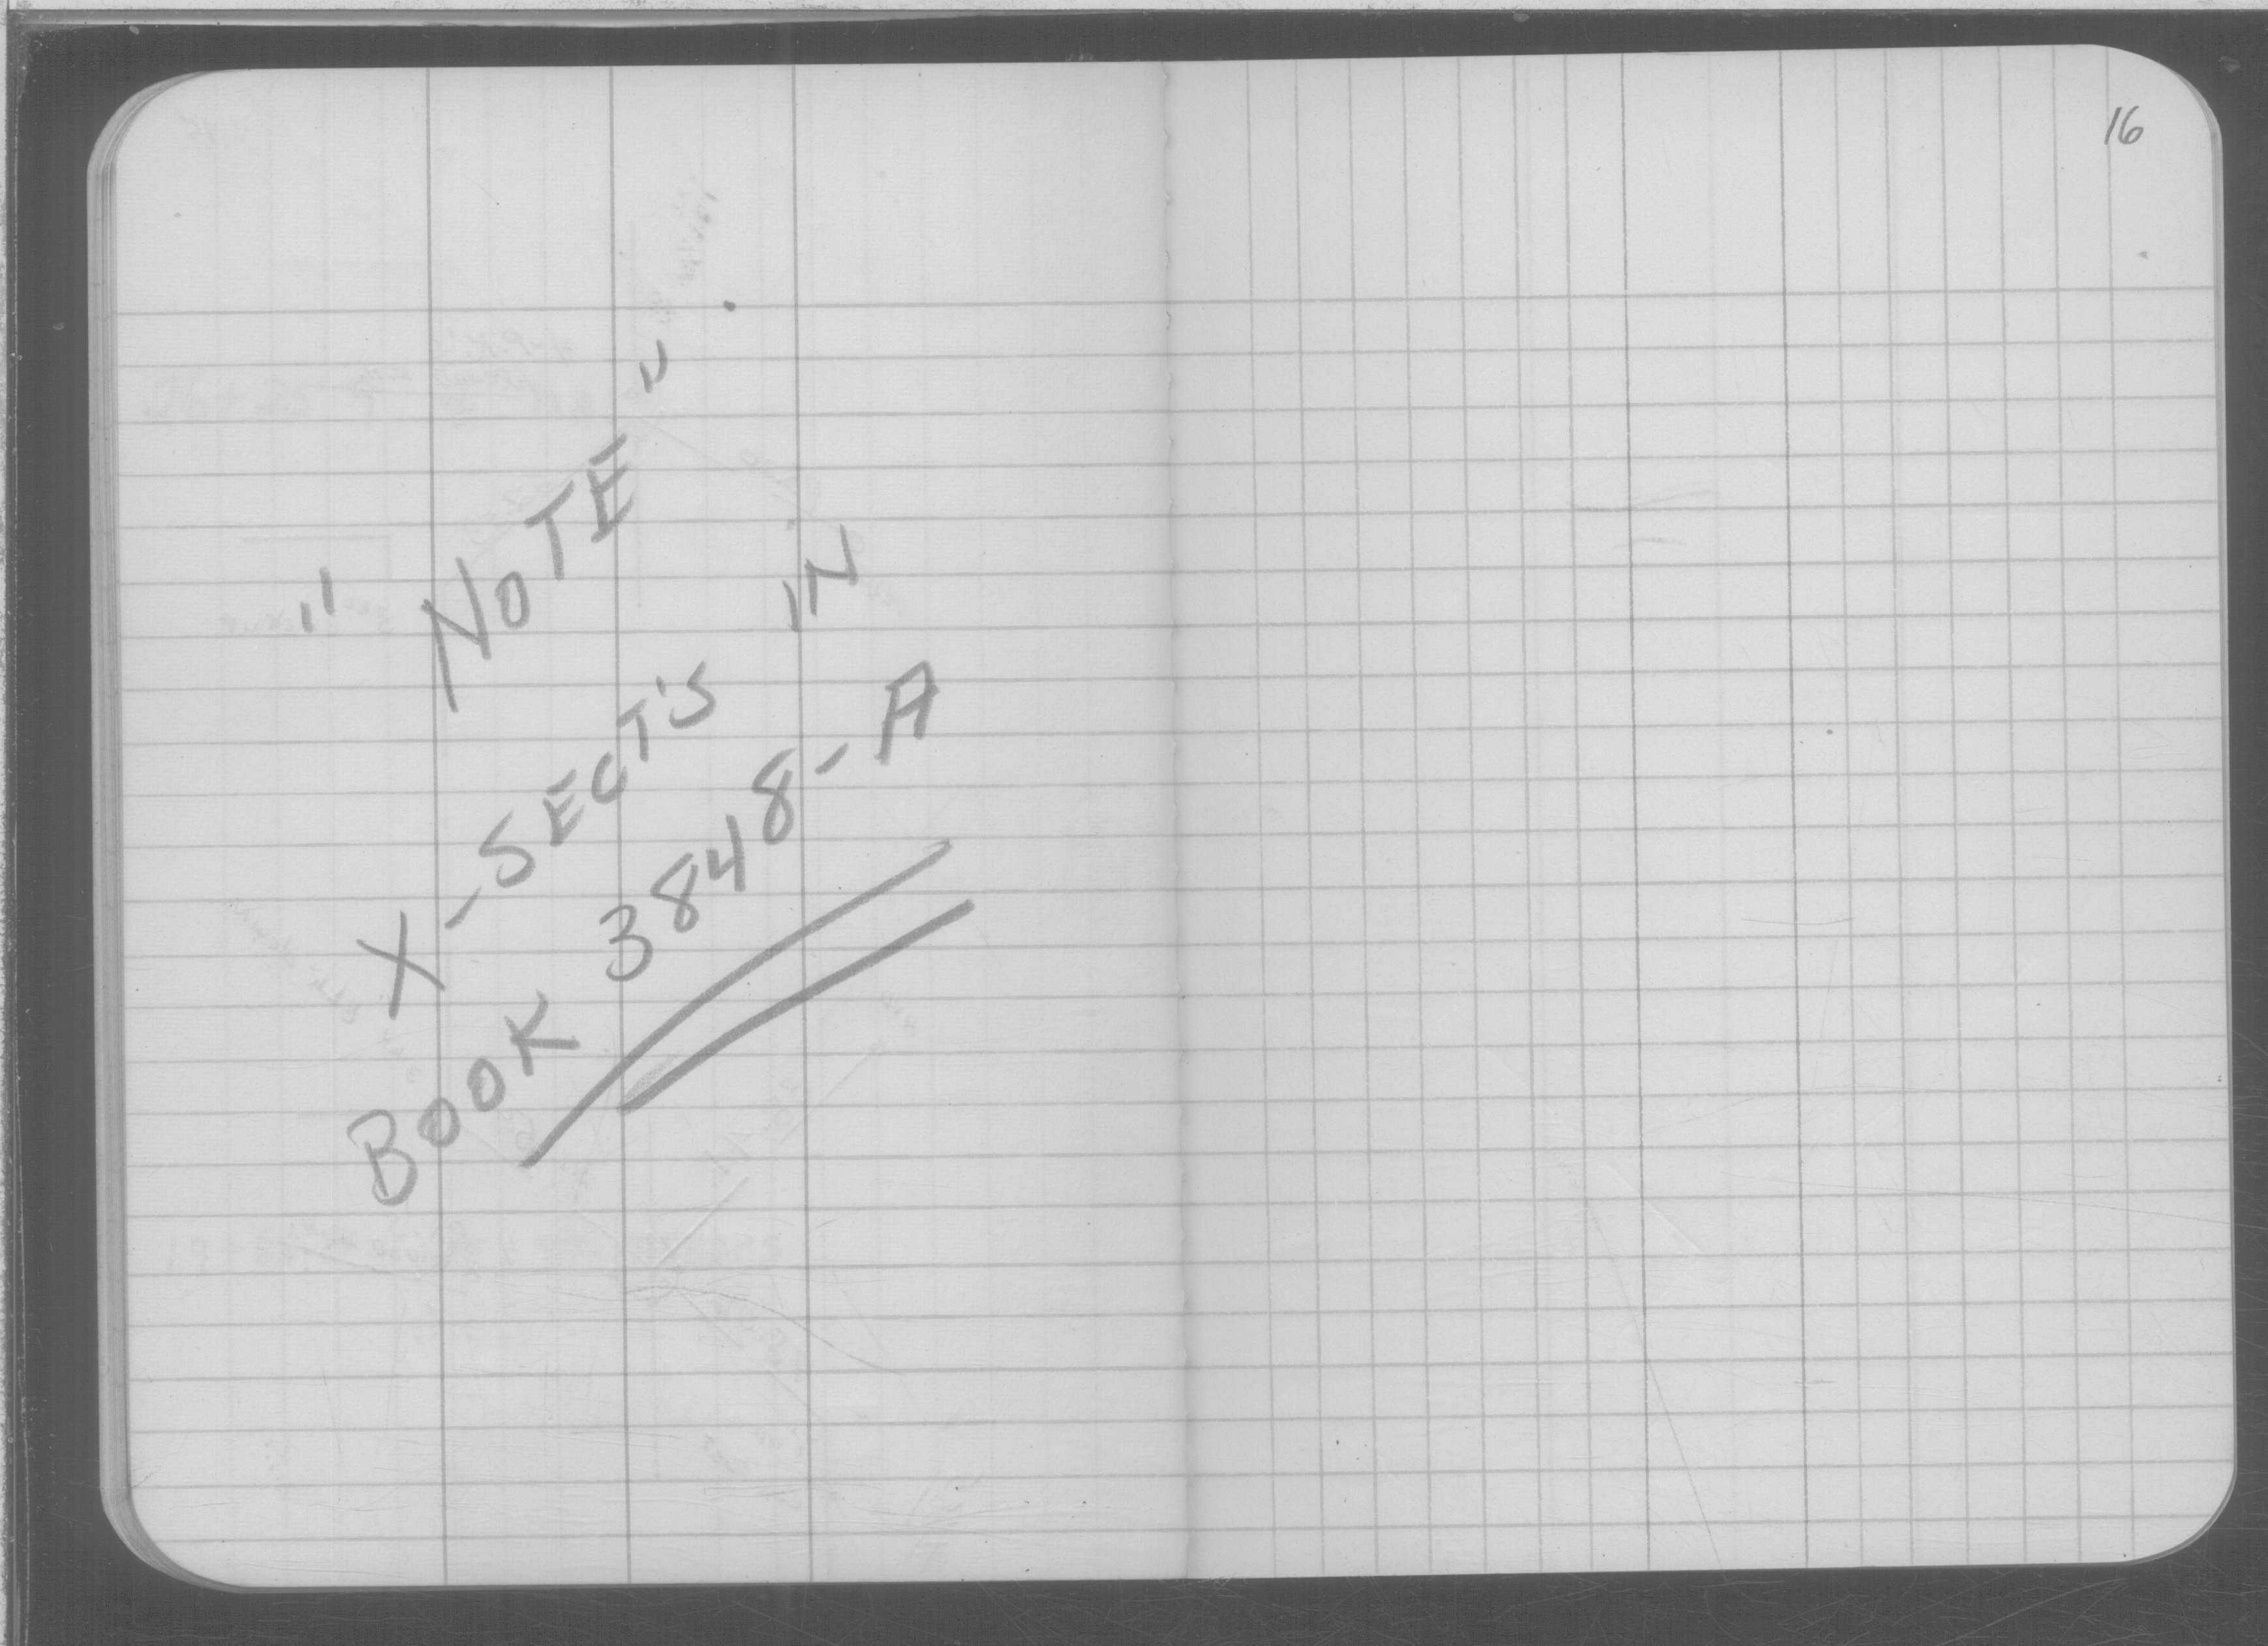 " NOTE "
X-SECT'S IN
BOOK 3848-A
16